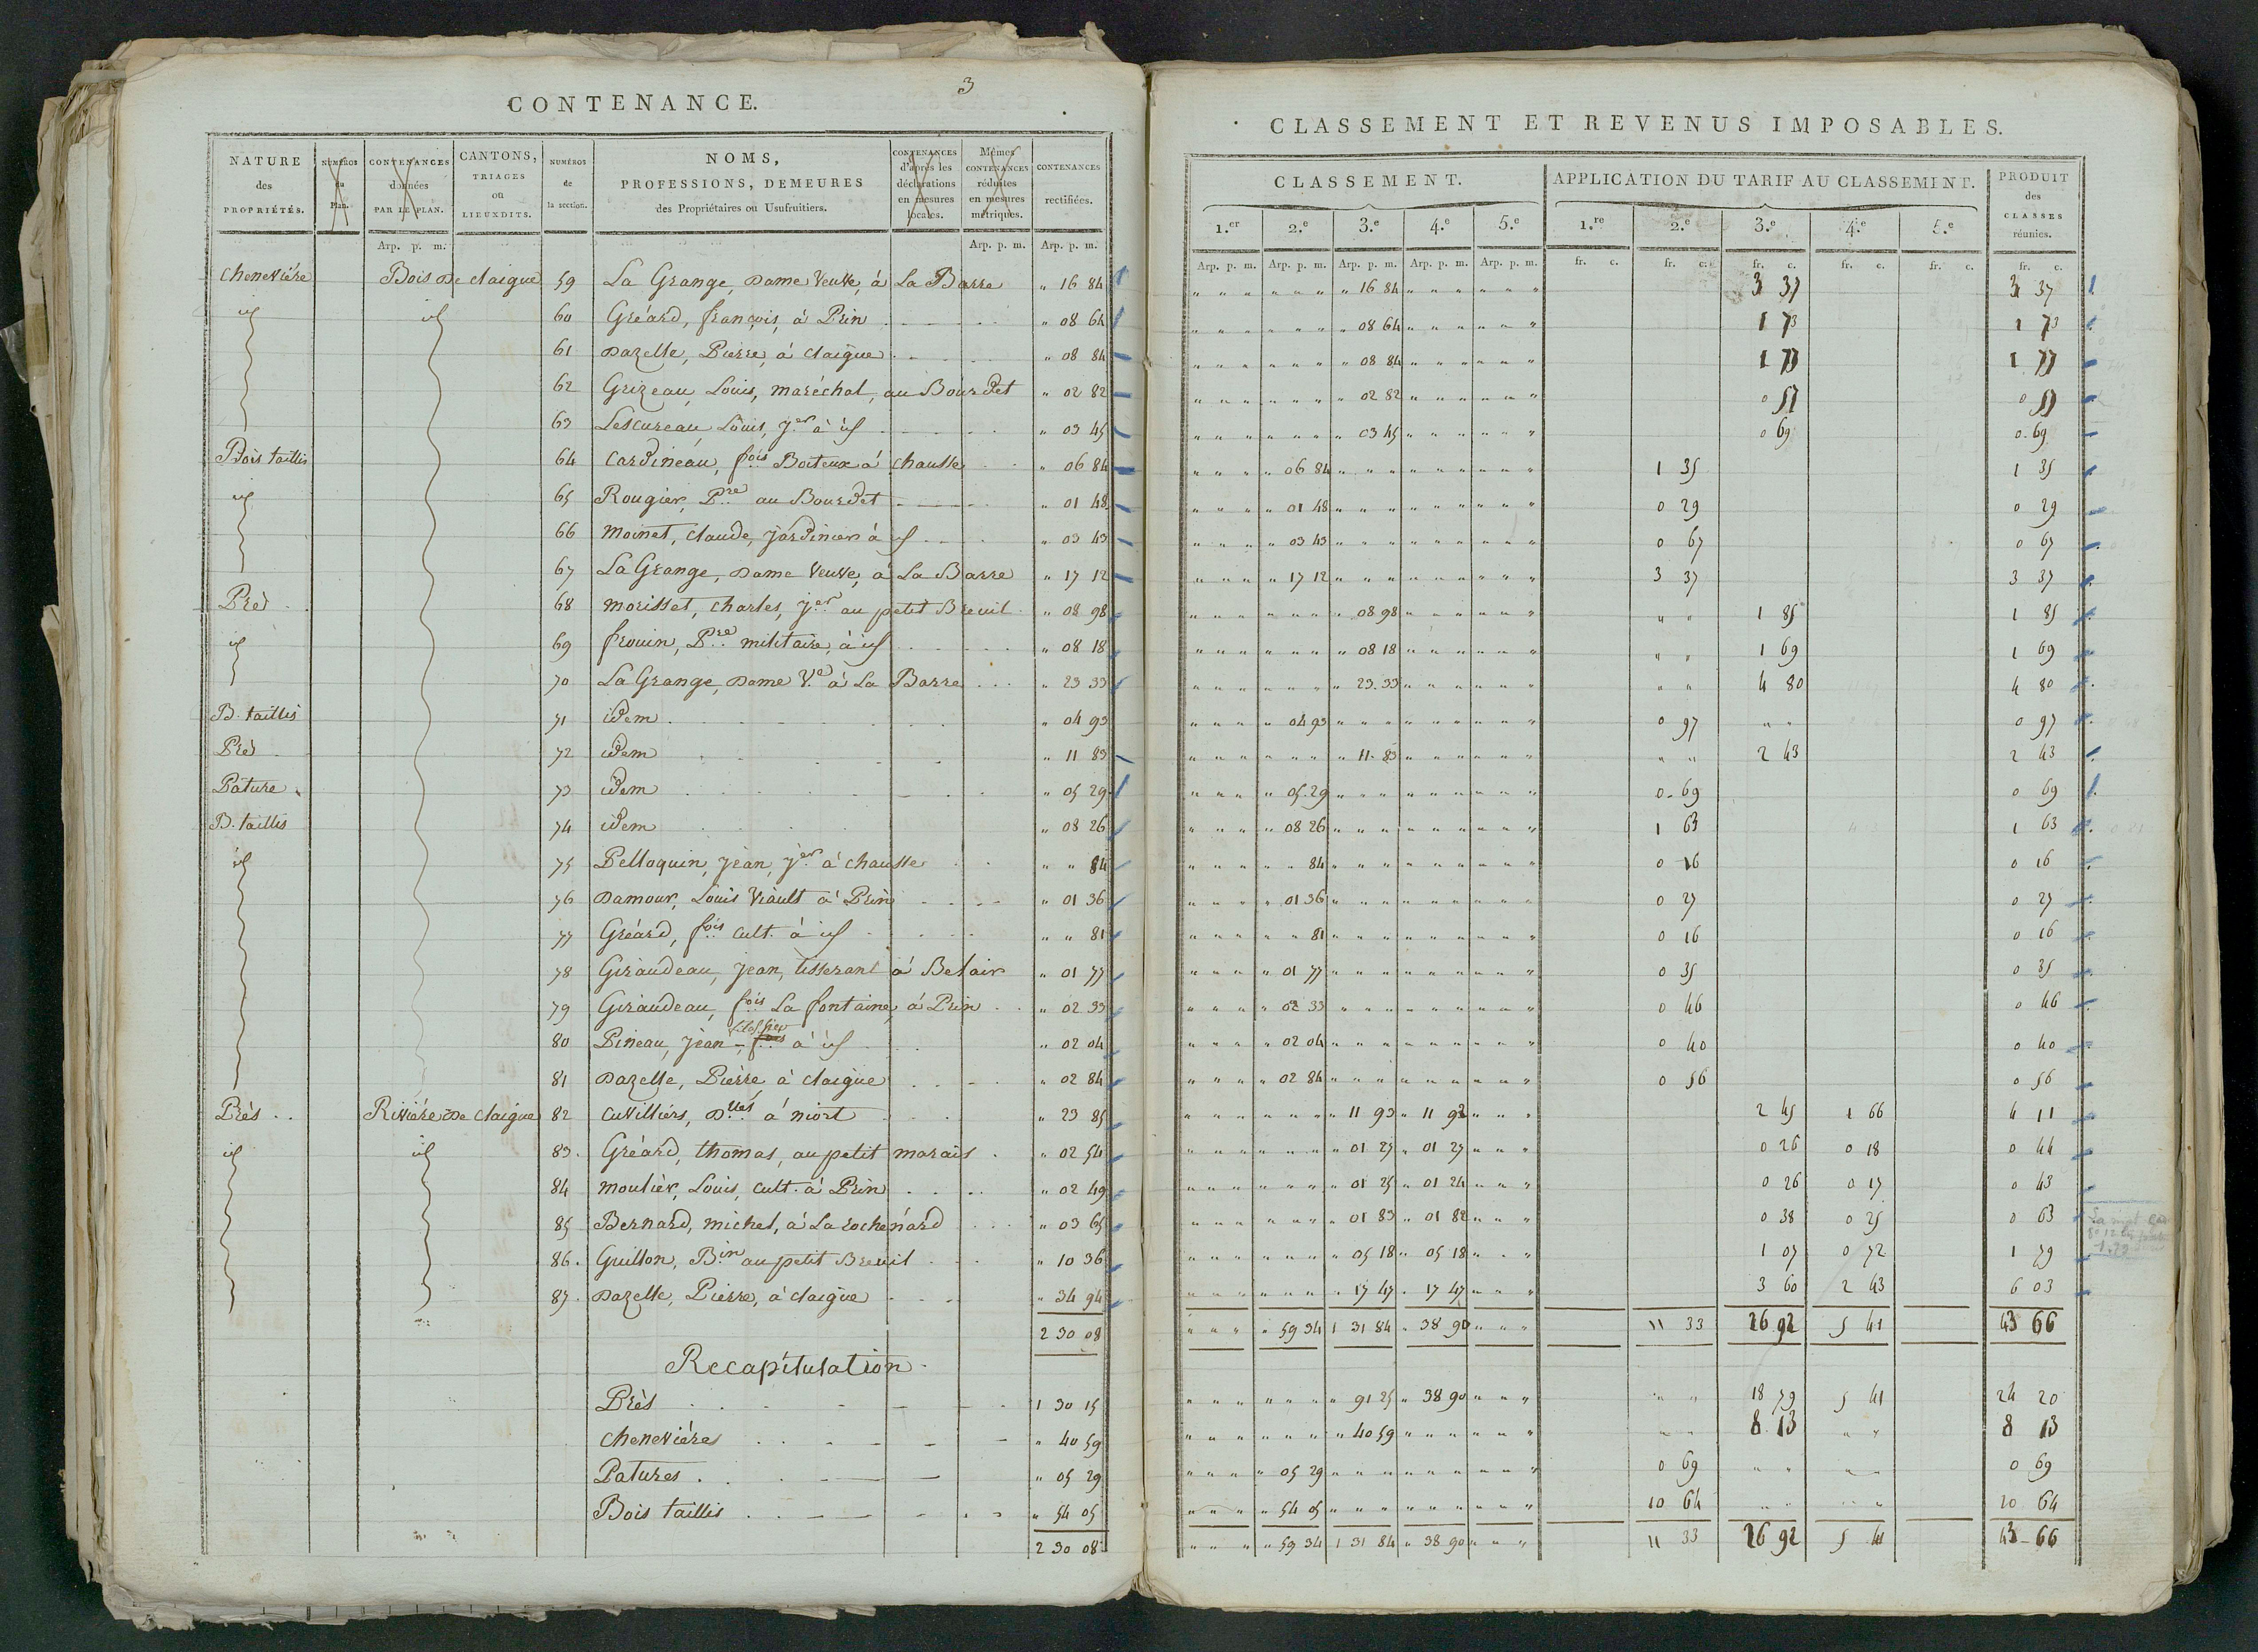 3
CONTENANCE.
NATURE des PROPRIÉTÉS. | NUMÉROS du Plan. | CONTENANCES données PAR LE PLAN. | CANTONS, TRIAGES ou LIEUXDITS. | NUMÉROS de la section. | NOMS, PROFESSIONS, DEMEURES des Propriétaires ou Usufruitiers. | CONTENANCES d'après les déclarations en mesures locales. | Mêmes CONTENANCES réduites en mesures métriques. | CONTENANCES rectifiées.
Arp. p. m. | Arp. p. m. | Arp. p. m.
Cheneviére Bois De Claigue 59 La Grange, Dame Veuve, à La Barre " 16 84
id id 60 Gréard, françois, à Prin " 08 64
61 Dazelle, Pierre, à Claigue " 08 84
62 Grizeau, Louis, maréchal, au Bourdet " 02 82
63 Lescureau Louis, jer à id " 03 45
Bois taillis 64 Cardineau, fois Boiteux à chausse " 06 84
id 65 Rougier, Pre au Bourdet " 01 48
66 Moinet, Claude, jardinier à id " 03 43
67 La Grange, Dame Veuve, à La Barre " 17 12
Prés 68 Morisset, Charles, jer au petit Breuil " 08 98
id 69 frouin, Pre militaire, à id " 08 18
70 La Grange, Dame Ve à La Barre " 23 33
B. taillis 71 idem " 04 93
Prés 72 idem " 11 83
Pature 73 idem " 05 29
B. taillis 74 idem " 08 26
id 75 Pelloquin, jean, jer à chausse " " 84
76 Damour, Louis Viault à Prin " 01 36
77 Gréard, fois cult. à id " " 81
78 Giraudeau, jean, tisserant à Belair " 01 77
79 Giraudeau, fois La fontaine, à Prin " 02 33
80 Pineau, jean à id " 02 04
81 Dazelle, Pierre à Claigue " 02 84
Prés Riviére De Claigue 82 Cuvilliers, Dlles à niort " 23 85
id id 83. Gréard, thomas, au petit marais " 02 54
84 Moulier, Louis, cult. à Prin " 02 49
85 Bernard, michel, à La rochenard " 03 65
86. Guillon, Bin au petit Breuil " 10 36
87. Dazelle, Pierre, à Claigue " 34 94
2 30 08
Recapitulation
Prés 1 30 15
Cheneviéres " 40 59
Patures " 05 29
Bois taillis " 54 05
2 30 08
CLASSEMENT ET REVENUS IMPOSABLES.
CLASSEMENT. | APPLICATION DU TARIF AU CLASSEMENT. | PRODUIT des CLASSES réunies.
1.er | 2.e | 3.e | 4.e | 5.e | 1.re | 2.e | 3.e | 4.e | 5.e
Arp. p. m. | Arp. p. m. | Arp. p. m. | Arp. p. m. | Arp. p. m. | fr. c. | fr. c. | fr. c. | fr. c. | fr. c. | fr. c.
" 16 84 3 37 3 37
" 08 64 1 73 1 73
" 08 84 1 77 1 77
" 02 82 0 57 0 57
" 03 45 0 69 0 69
" 06 84 1 35 1 35
" 01 48 0 29 0 29
" 03 43 0 67 0 67
" 17 12 3 37 3 37
" 08 98 " " 1 85 1 85
" 08 18 " " 1 69 1 69
" 23 33 " " 4 80 4 80
" 04 93 0 97 " " 0 97
" 11 83 " " 2 43 2 43
" 05 29 0 69 0 69
" 08 26 1 63 1 63
" " 84 0 16 0 16
" 01 36 0 27 0 27
" " 81 0 16 0 16
" 01 77 0 35 0 35
" 02 33 0 46 0 46
" 02 04 0 40 0 40
" 02 84 0 56 0 56
" 11 93 " 11 92 2 45 1 66 4 11
" 01 27 " 01 27 0 26 0 18 0 44
" 01 25 " 01 24 0 26 0 17 0 43
" 01 83 " 01 82 0 38 0 25 0 63
" 05 18 " 05 18 1 07 0 72 1 79
" 17 47 " 17 47 3 60 2 43 6 03
" 59 34 1 31 84 " 38 90 11 33 26 92 5 41 43 66
" 91 25 " 38 90 " " 18 79 5 41 24 20
" 40 59 " " 8 13 " " 8 13
" 05 29 0 69 " " " " 0 69
" 54 05 10 64 " " " " 10 64
" 59 34 1 31 84 " 38 90 11 33 26 92 5 41 43 66